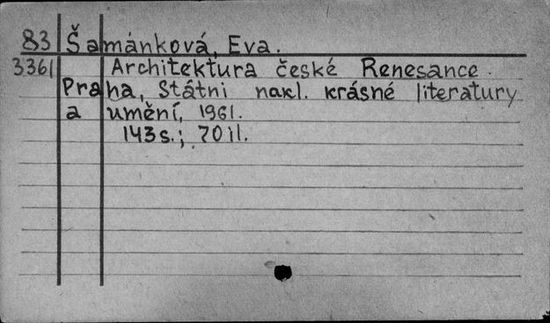 83 Šamánková, Eva.
3361 Architektura české Renesance.
Praha, Státni nakl. krásné literatury
a umění, 1961.
143 s.; 70 il.